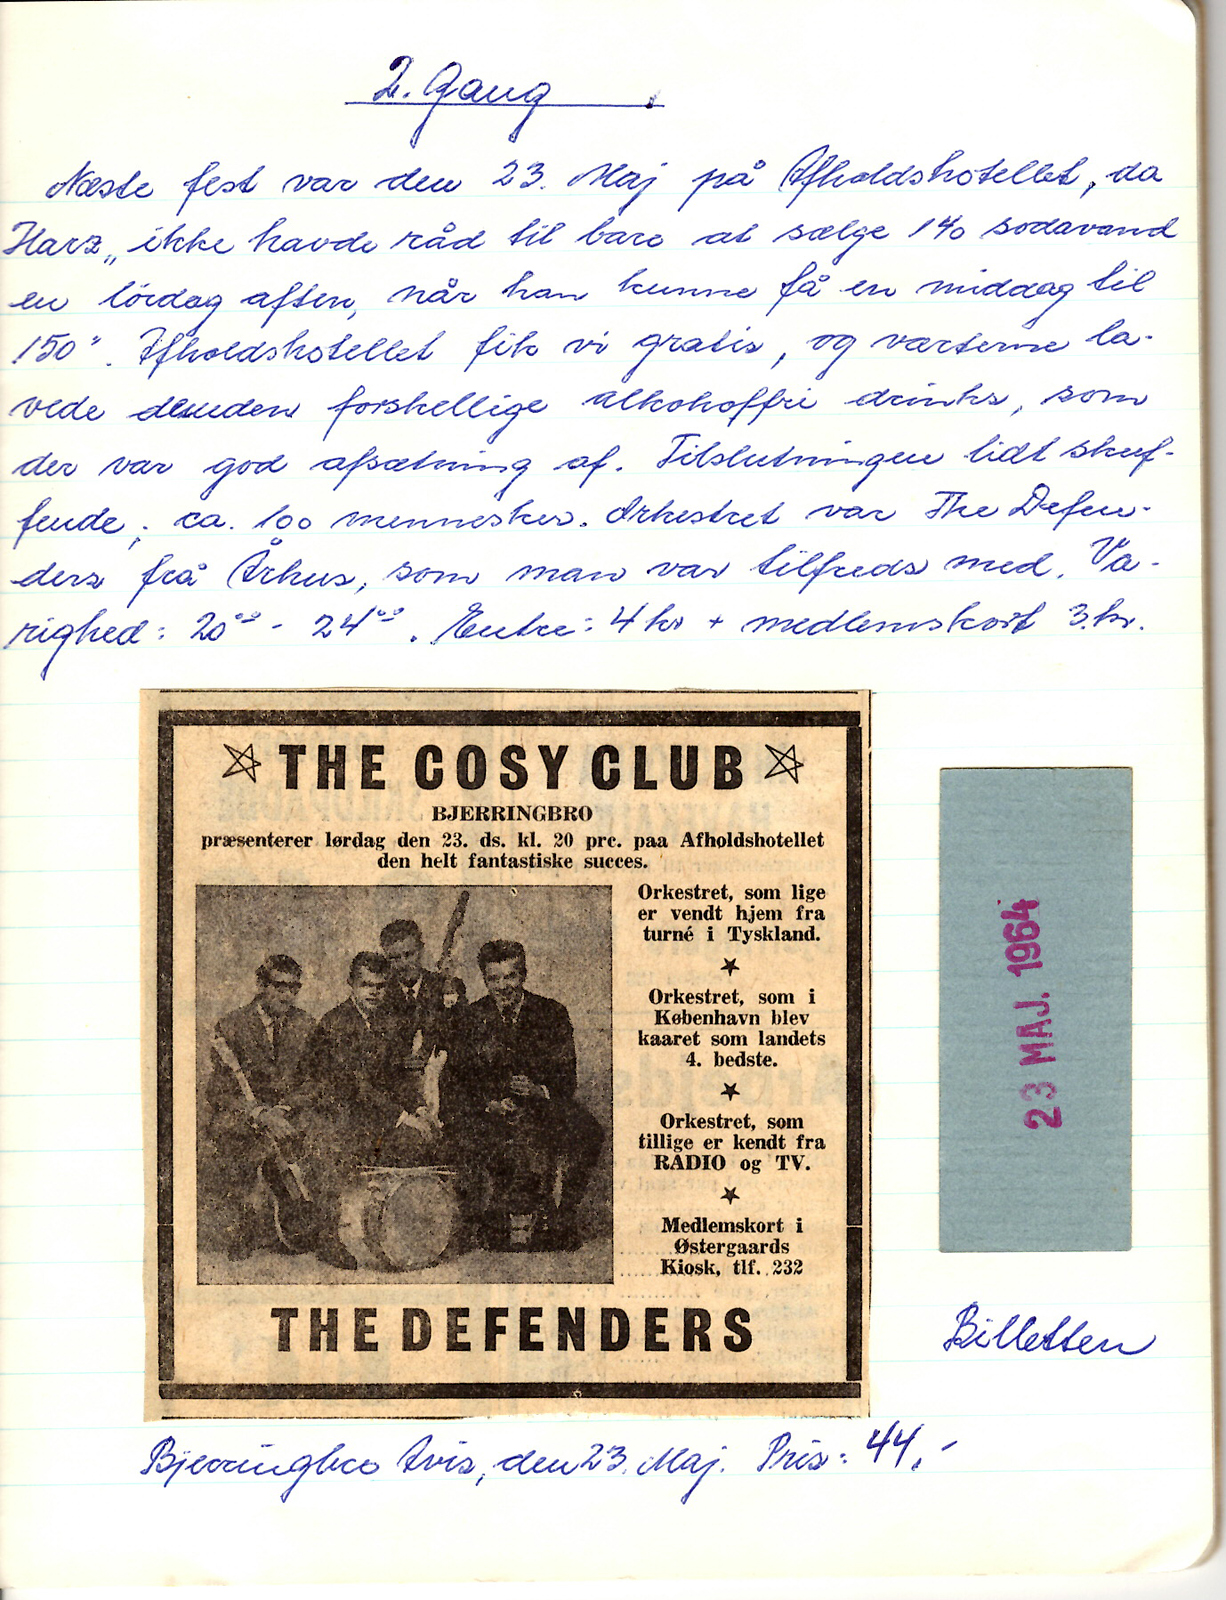 2. Gang.
Næste fest var den 23. Maj på Afholdshotellet, da
Harz „ ikke havde råd til bare at sælge 140 sodavand
en lördag aften, når han kunne få en middag til
150". Afholdshotellet fik vi gratis, og værterne la-
vede desuden forskellige alkoholfri drinks, som
der var god afsætning af. Tilslutningen lidt skuf-
fende, ca. 100 mennesker. Orkestret var The Defen-
ders frå Århus, som man var tilfreds med. Va-
righed: 20⁰⁰ - 24⁰⁰. Entre: 4 kr + medlemskort 3 kr.
THE COSY CLUB
BJERRINGBRO
præsenterer lørdag den 23. ds. kl. 20 prc. paa Afholdshotellet
den helt fantastiske succes.
Orkestret, som lige
er vendt hjem fra
turné i Tyskland.
Orkestret, som i
København blev
kaaret som landets
4. bedste.
Orkestret, som
tillige er kendt fra
RADIO og TV.
Medlemskort i
Østergaards
Kiosk, tlf. 232
THE DEFENDERS
23 MAJ. 1964
Billetten
Bjerringbro Avis, den 23. Maj. Pris: 44.-